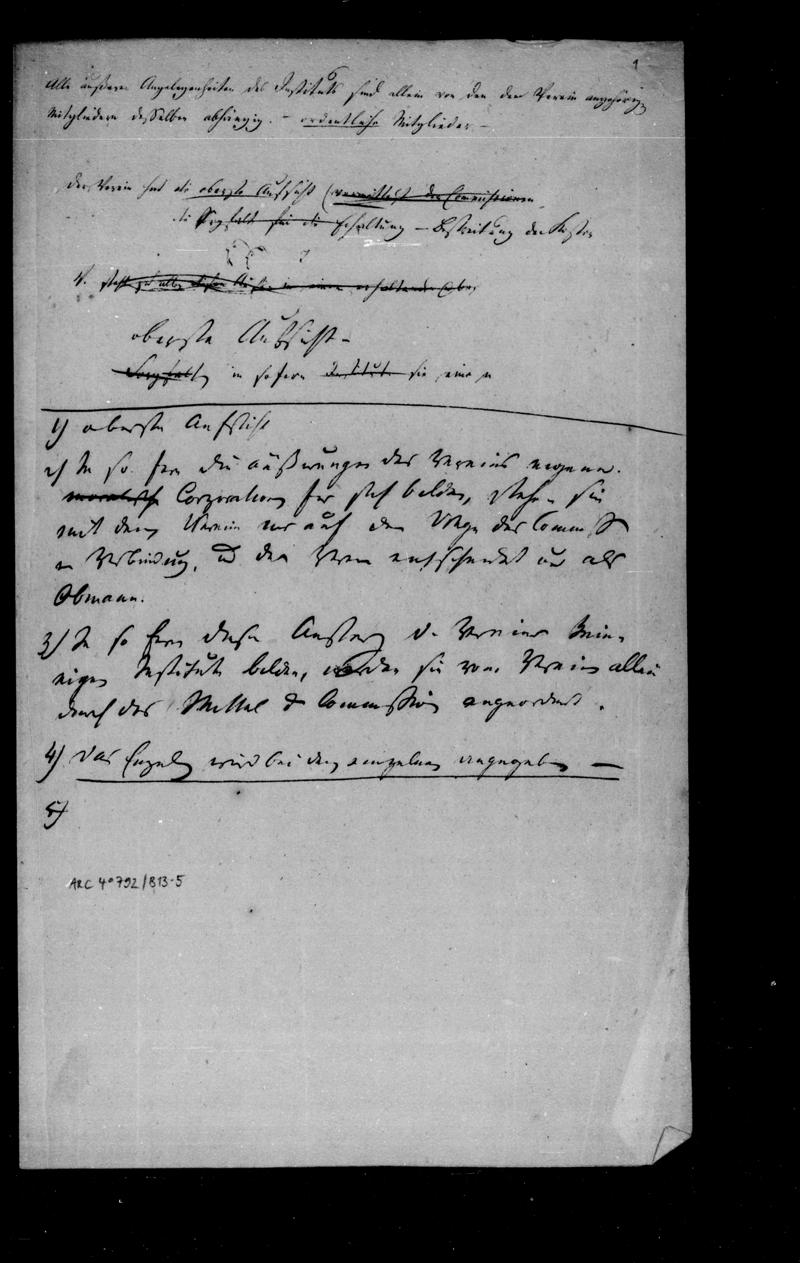 1
Alle äußeren Angelegenheiten des Instituts sind allein von den dem Verein angehörigen
Mitgliedern desselben abhängig. – ordentliche Mitglieder –
der Verein hat die oberste Aufsicht (vermittelst der Commissionen
die Sorgfalt für die Erhaltung – Bestreitung der Kosten
oberste Aufsicht –
Sorgfalt in sofern Institute sie eine
1) oberste Aufsicht
2) In so fern die Äußerungen des Vereins eigene
moralische Corporationen für sich bilden, stehen sie
mit dem Verein nur auf dem Wege der Commiss
in Verbindung, und der Verein entscheidet nur als
Obmann.
3) In so fern diese des Vereines
Institute bilden, werden sie vom Verein allein
durch das Mittel der Commission angeordnet.
4) Das Einzelne wird bei den einzelnen angegeben —
5)
ARC 4° 792/B13-5